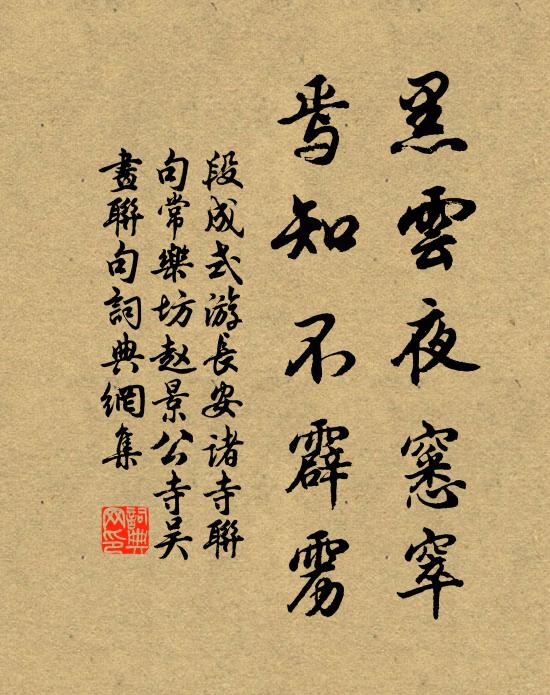 黑雲夜窸窣
焉知不霹雳
段成式游長安诸寺聯
句常樂坊赵景公寺吴
畫聯句詞典網集
詞典
网印